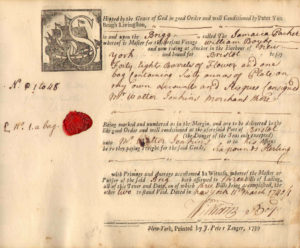 Shipped by the Grace of God in good Order and well Conditioned by Peter Van
Brugh Livingston,
in and upon the Brigg called The Jamaica Packet
whereof is Master for this present Voyage William Boyd
and now riding at Anchor in the Harbour of New
York and bound for Bristol
Forty Eight Barrels of Flower and one
bag containing Sixty ounces of Plate on
my own Account and Risque Consigned
Mr. Walter Jenkins Merchant there
No. P 1 to 48
P. W. I. a bag.
Being marked and numbered as in the Margin, and are to be delivered in the
like good Order and well conditioned at the aforesaid Port of Bristol
(the Danger of the Seas only excepted)
unto Mr. Walter Jenkins or to his
Assigns, he or they paying Freight for the said Goods, Six pounds Sterling
with Primage and Average accustomed. In Witness whereof the Master
of the said Brig hath affirmed to Three Bills of Lading,
all of this Tenor and Date, one of which Three Bills being accomplished, the
other two to stand Void. Dated in New York 11 March
New-York, Printed by J. Peter Zenger, 1737